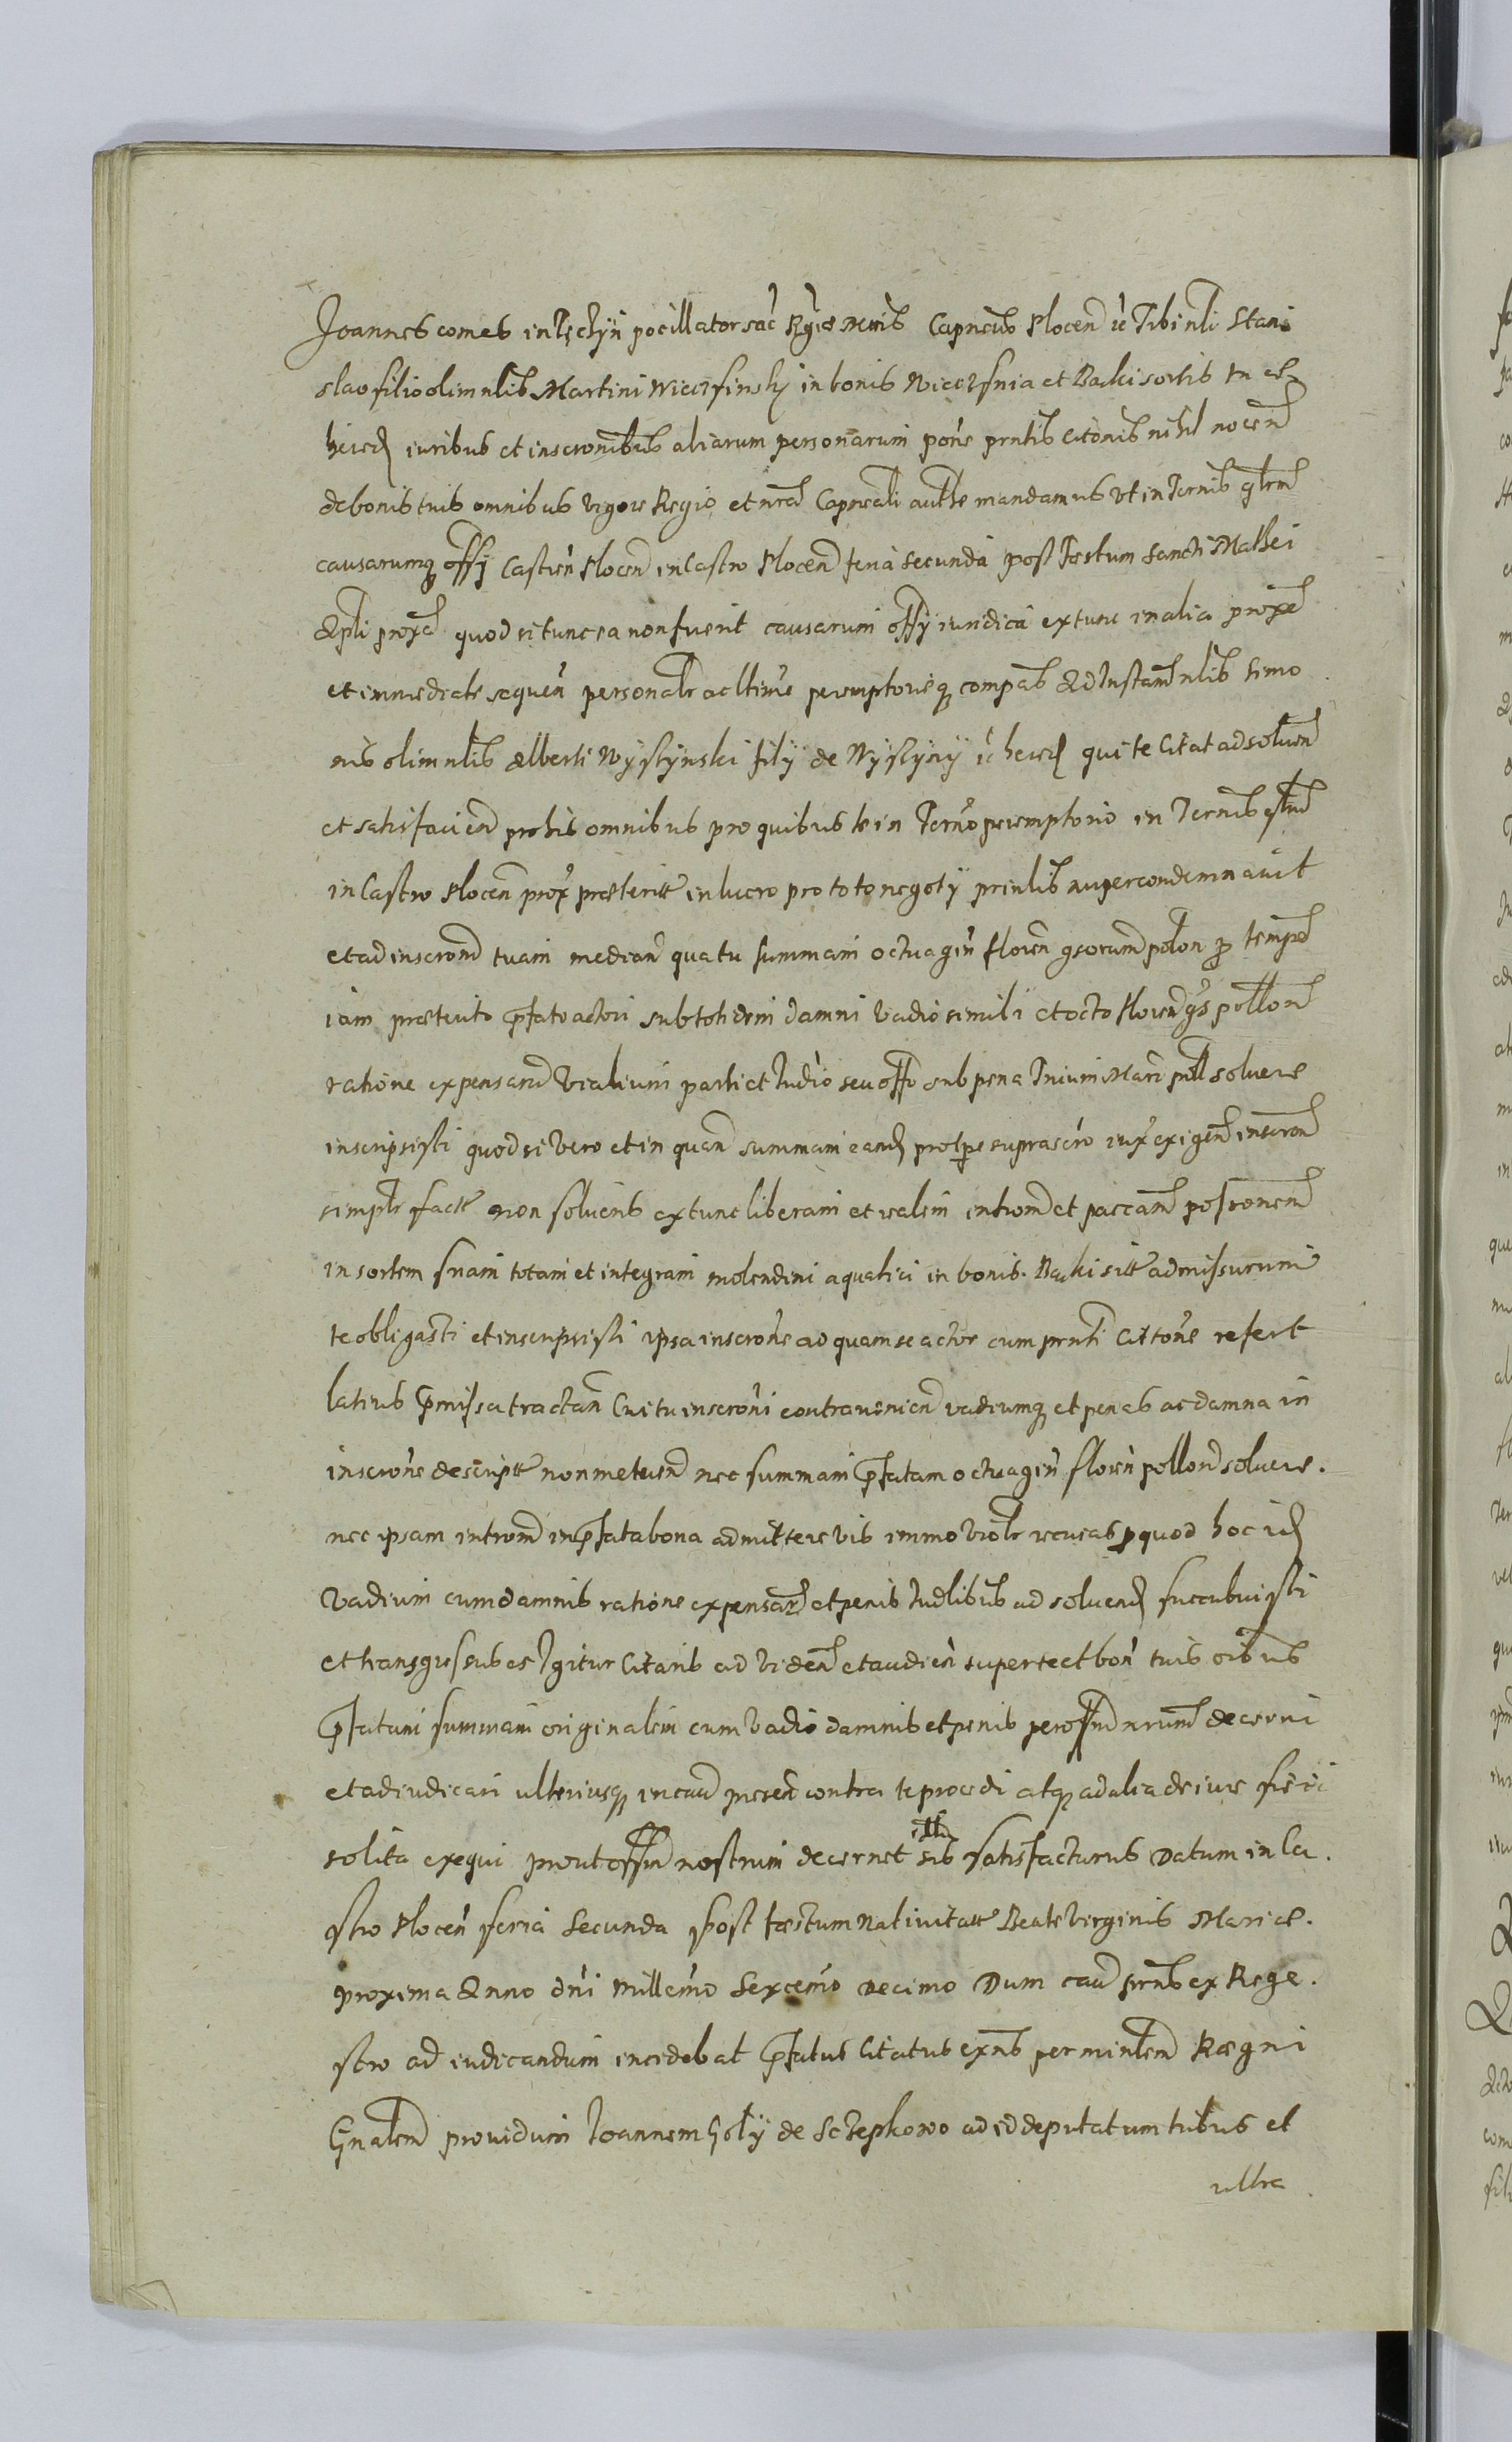 Joannes comes in Tęczyn pocillator sac Rgiae Mtis Capneus Plocen ic Tibi nli Stani
slao filio olim nlis Martini Wiecżfinskj in bonis Wieczfnia et Backi sortis tu et
hered iuribus et inscronibus aliarum personarum pone prntis citonis nihil nocen
de bonis tuis omnibus vigore Regio et nra Capneali authe mandamus vt in Ternis qrlm
causarumq offy Castren Plocen in Castro Plocen feria secunda post Festum Sancti Mathei
Apli proxa quod si tunc ea non fuerit causarum offy iuridica extunc in alia proxe
et immediate sequen personalr ac ltime peremptorieq compas Ad Instam nlis Simo
nis olim nlis Alberti Wyszynski fily de Wyszyny ic hered qui te Citat ad soluen
et satisfacien pro his omnibus pro quibus te in Terno peremptorio in Ternis qrlm
in Castro Plocen prox praeterit in lucro pro toto negoty prinlis nuper condemnauit
et ad inscrom tuam median qua tu summam octuagin floren gsorum polon p tempe
iam praeterito pfato actori sub totidem damni vadio simili et octo floren gs pollon
ratione expensarum vialium parti et Iudio seu offo sub pena Trium Marc pnll soluere
inscripsisti quod si vero et in quan summam eand pro tpre suprascro iux exigen inscron
simplr fact non solueris extunc liberam et realem introm et paccam possionem
in sortem suam totam et integram molendini aquatici in bonis Backi sitt admissurum
te obligasti et inscripsisti ipsa inscrone ad quam se actor cum prnti Citone refert
latius pmissa tractan Cui tu inscroni contrauenien vadiumq et penas ac damna in
inscrone descript non metuen nec summam pfatam octuagin floren pollon soluere
nec ipsam introm in pfata bona admittere vis immo violr recusas p quod hoc id
vadium cum damnis ratione expensar et penis Iudlibus ad soluend succubuisti
et transgressus es Igitur Citaris ad viden et audien super te et bon tuis oibus
pfatam summam originalem cum vadio damnis et penis per offm nrum decerni
et adiudicari vlteriusq in cau presen contra te procedi atq ad alia de iure fieri
solita exequi prout offm nostrum decernet illi sis satisfacturus Datum in Ca
stro Plocen feria Secunda post festum Natiuitatt Beate Virginis Mariae
proxima Anno dni Millemo Sexcemo Decimo Dum cau prns ex Rege
stro ad iudicandum incidebat pfatus Citatus exns per mintem Regni
Gnalem prouidum Joannem Goly de Sczepkowo ad id deputatum tribus et
vltra